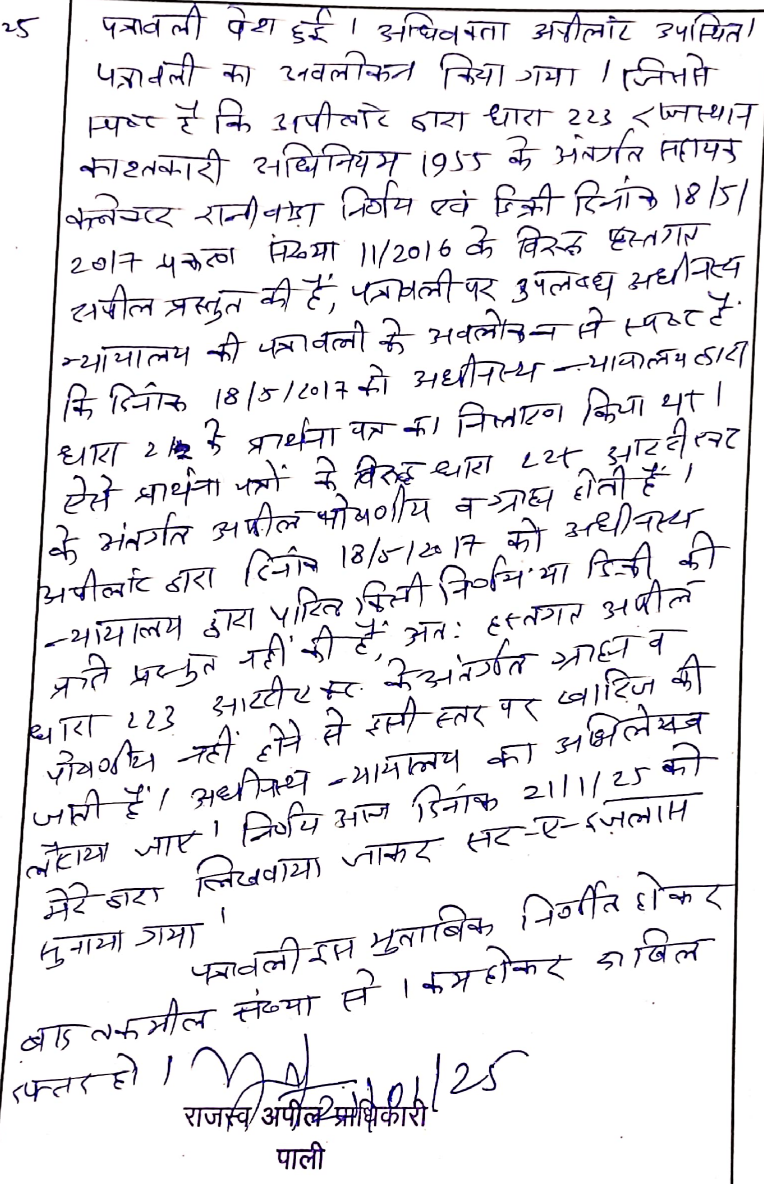 25
पत्रावली पेश हुई । अधिवक्ता अपीलांट उपस्थित।
पत्रावली का अवलोकन किया गया । जिससे
स्पष्ट है कि अपीलांट द्वारा धारा 223 राजस्थान
काश्तकारी अधिनियम 1955 के अंतर्गत सहायक
कलेक्टर रानीवाड़ा निर्णय एवं डिक्री दिनांक 18/5/
2017 प्रकरण संख्या 11/2016 के विरूद्ध हस्तगत
अपील प्रस्तुत की हैं, पत्रावली पर उपलब्ध अधीनस्थ
न्यायालय की पत्रावली के अवलोकन से स्पष्ट हैं
कि दिनांक 18/5/2017 को अधीनस्थ न्यायालय द्वारा
धारा 212 के प्रार्थना पत्र का निस्तारण किया था।
ऐसे प्रार्थना पत्रों के विरूद्ध धारा 225 आर टी एक्ट
के अंतर्गत अपील पोषणीय व ग्राह्य होती हैं ।
अपीलांट द्वारा दिनांक 18/5/2017 को अधीनस्थ
न्यायालय द्वारा पारित किसी निर्णय या डिक्री की
प्रति प्रस्तुत नहीं की हैं, अतः हस्तगत अपील
धारा 223 आरटीएक्ट के अंतर्गत ग्राह्य व
पोषणीय नहीं होने से इसी स्तर पर खारिज की
जाती हैं । अधीनस्थ न्यायालय का अभिलेख
लौटाया जाए । निर्णय आज दिनांक 21/1/25 को
मेरे द्वारा लिखवाया जाकर सर-ए-इजलास
सुनाया गया ।
पत्रावली इस मुताबिक निर्णीत होकर
बाद तकमील संख्या से 1 कम होकर दाखिल
दफ्तर हो ।
/01/25
राजस्व अपील प्राधिकारी
पाली